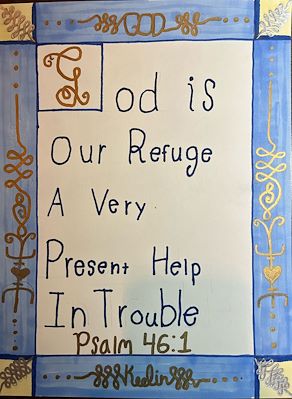 GOD
God is
Our Refuge
A Very
Present Help
In Trouble
Psalm 46:1
Keelin